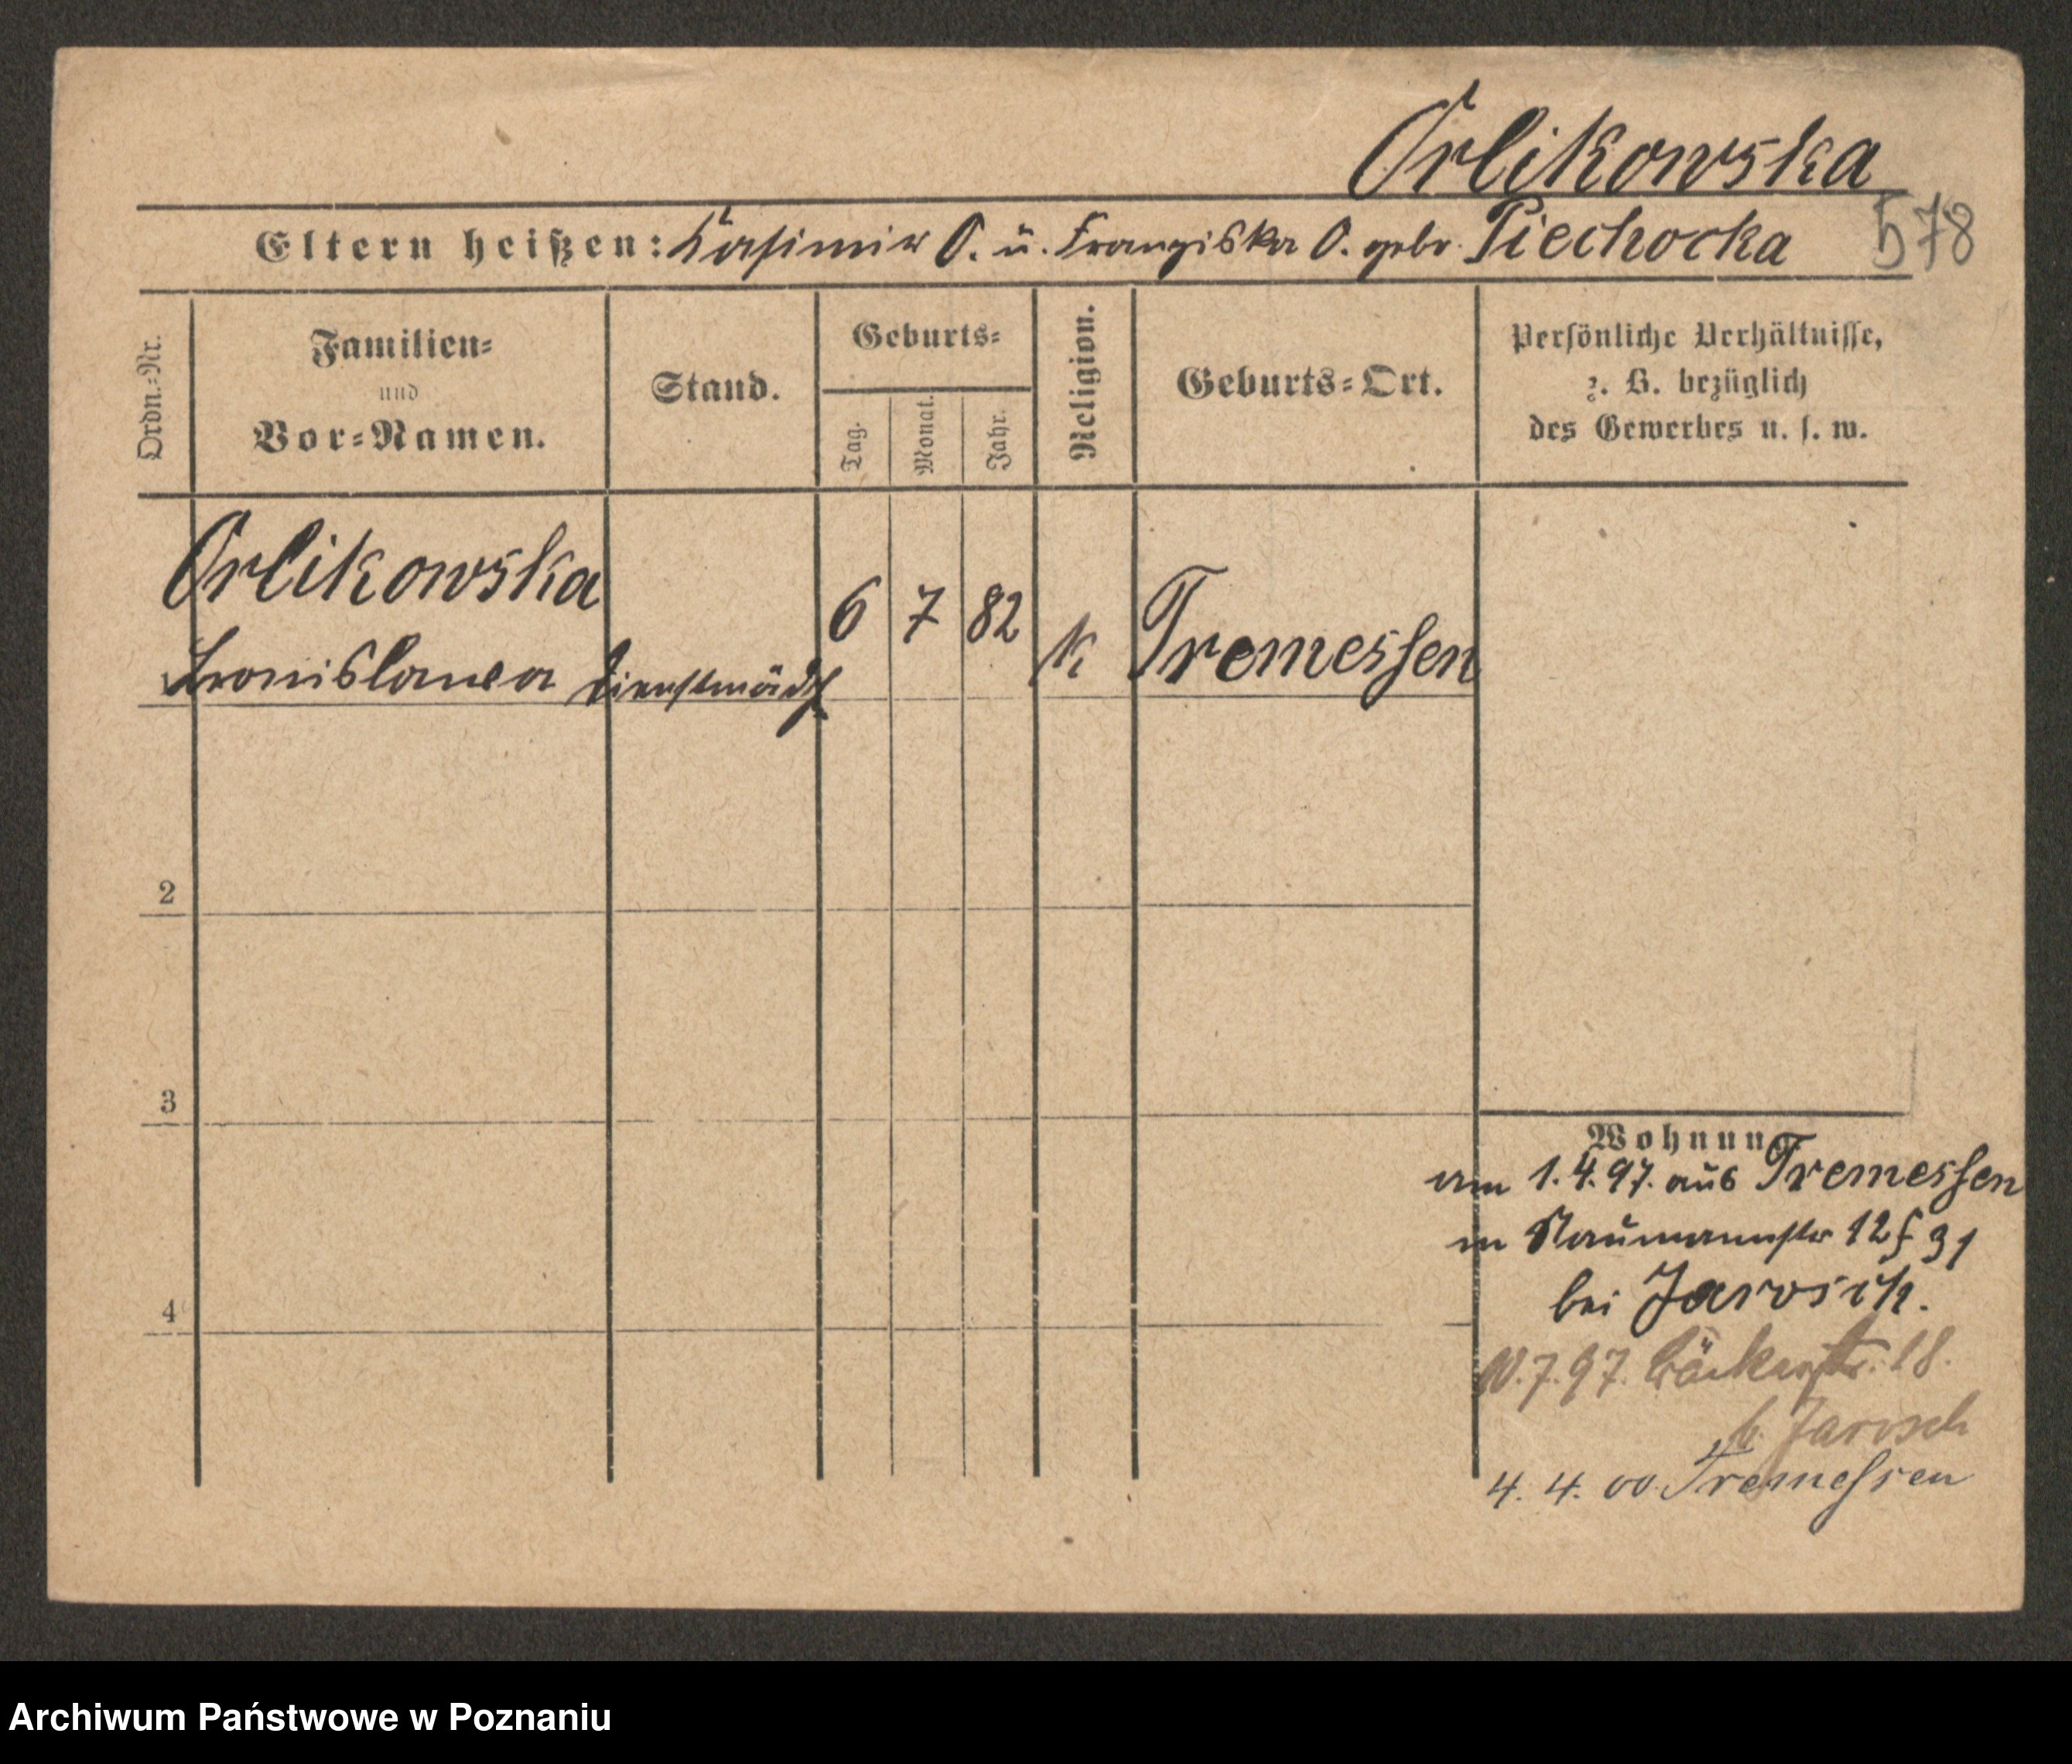 Orlikowska
Eltern heißen: Kasimir O. u. Franziska O. gebr. Piechocka
578
Ordn.=Nr.
Familien=
und
Vor=Namen.
Stand.
Geburts=
Tag.
Monat.
Jahr.
Religion.
Geburts=Ort.
Persönliche Verhältnisse,
z. B. bezüglich
des Gewerbes u. s. w.
Orlikowska
Bronislawa Dienstmädch
6 7 82 k Tremessen
2
3
4
Wohnung
am 1.4.97. aus Tremessen
in Naumannstr 12
bei
10.7.97. Bäckerstr. 18.
b. Jarosch
4. 4. 00. Tremessen
Archiwum Państwowe w Poznaniu